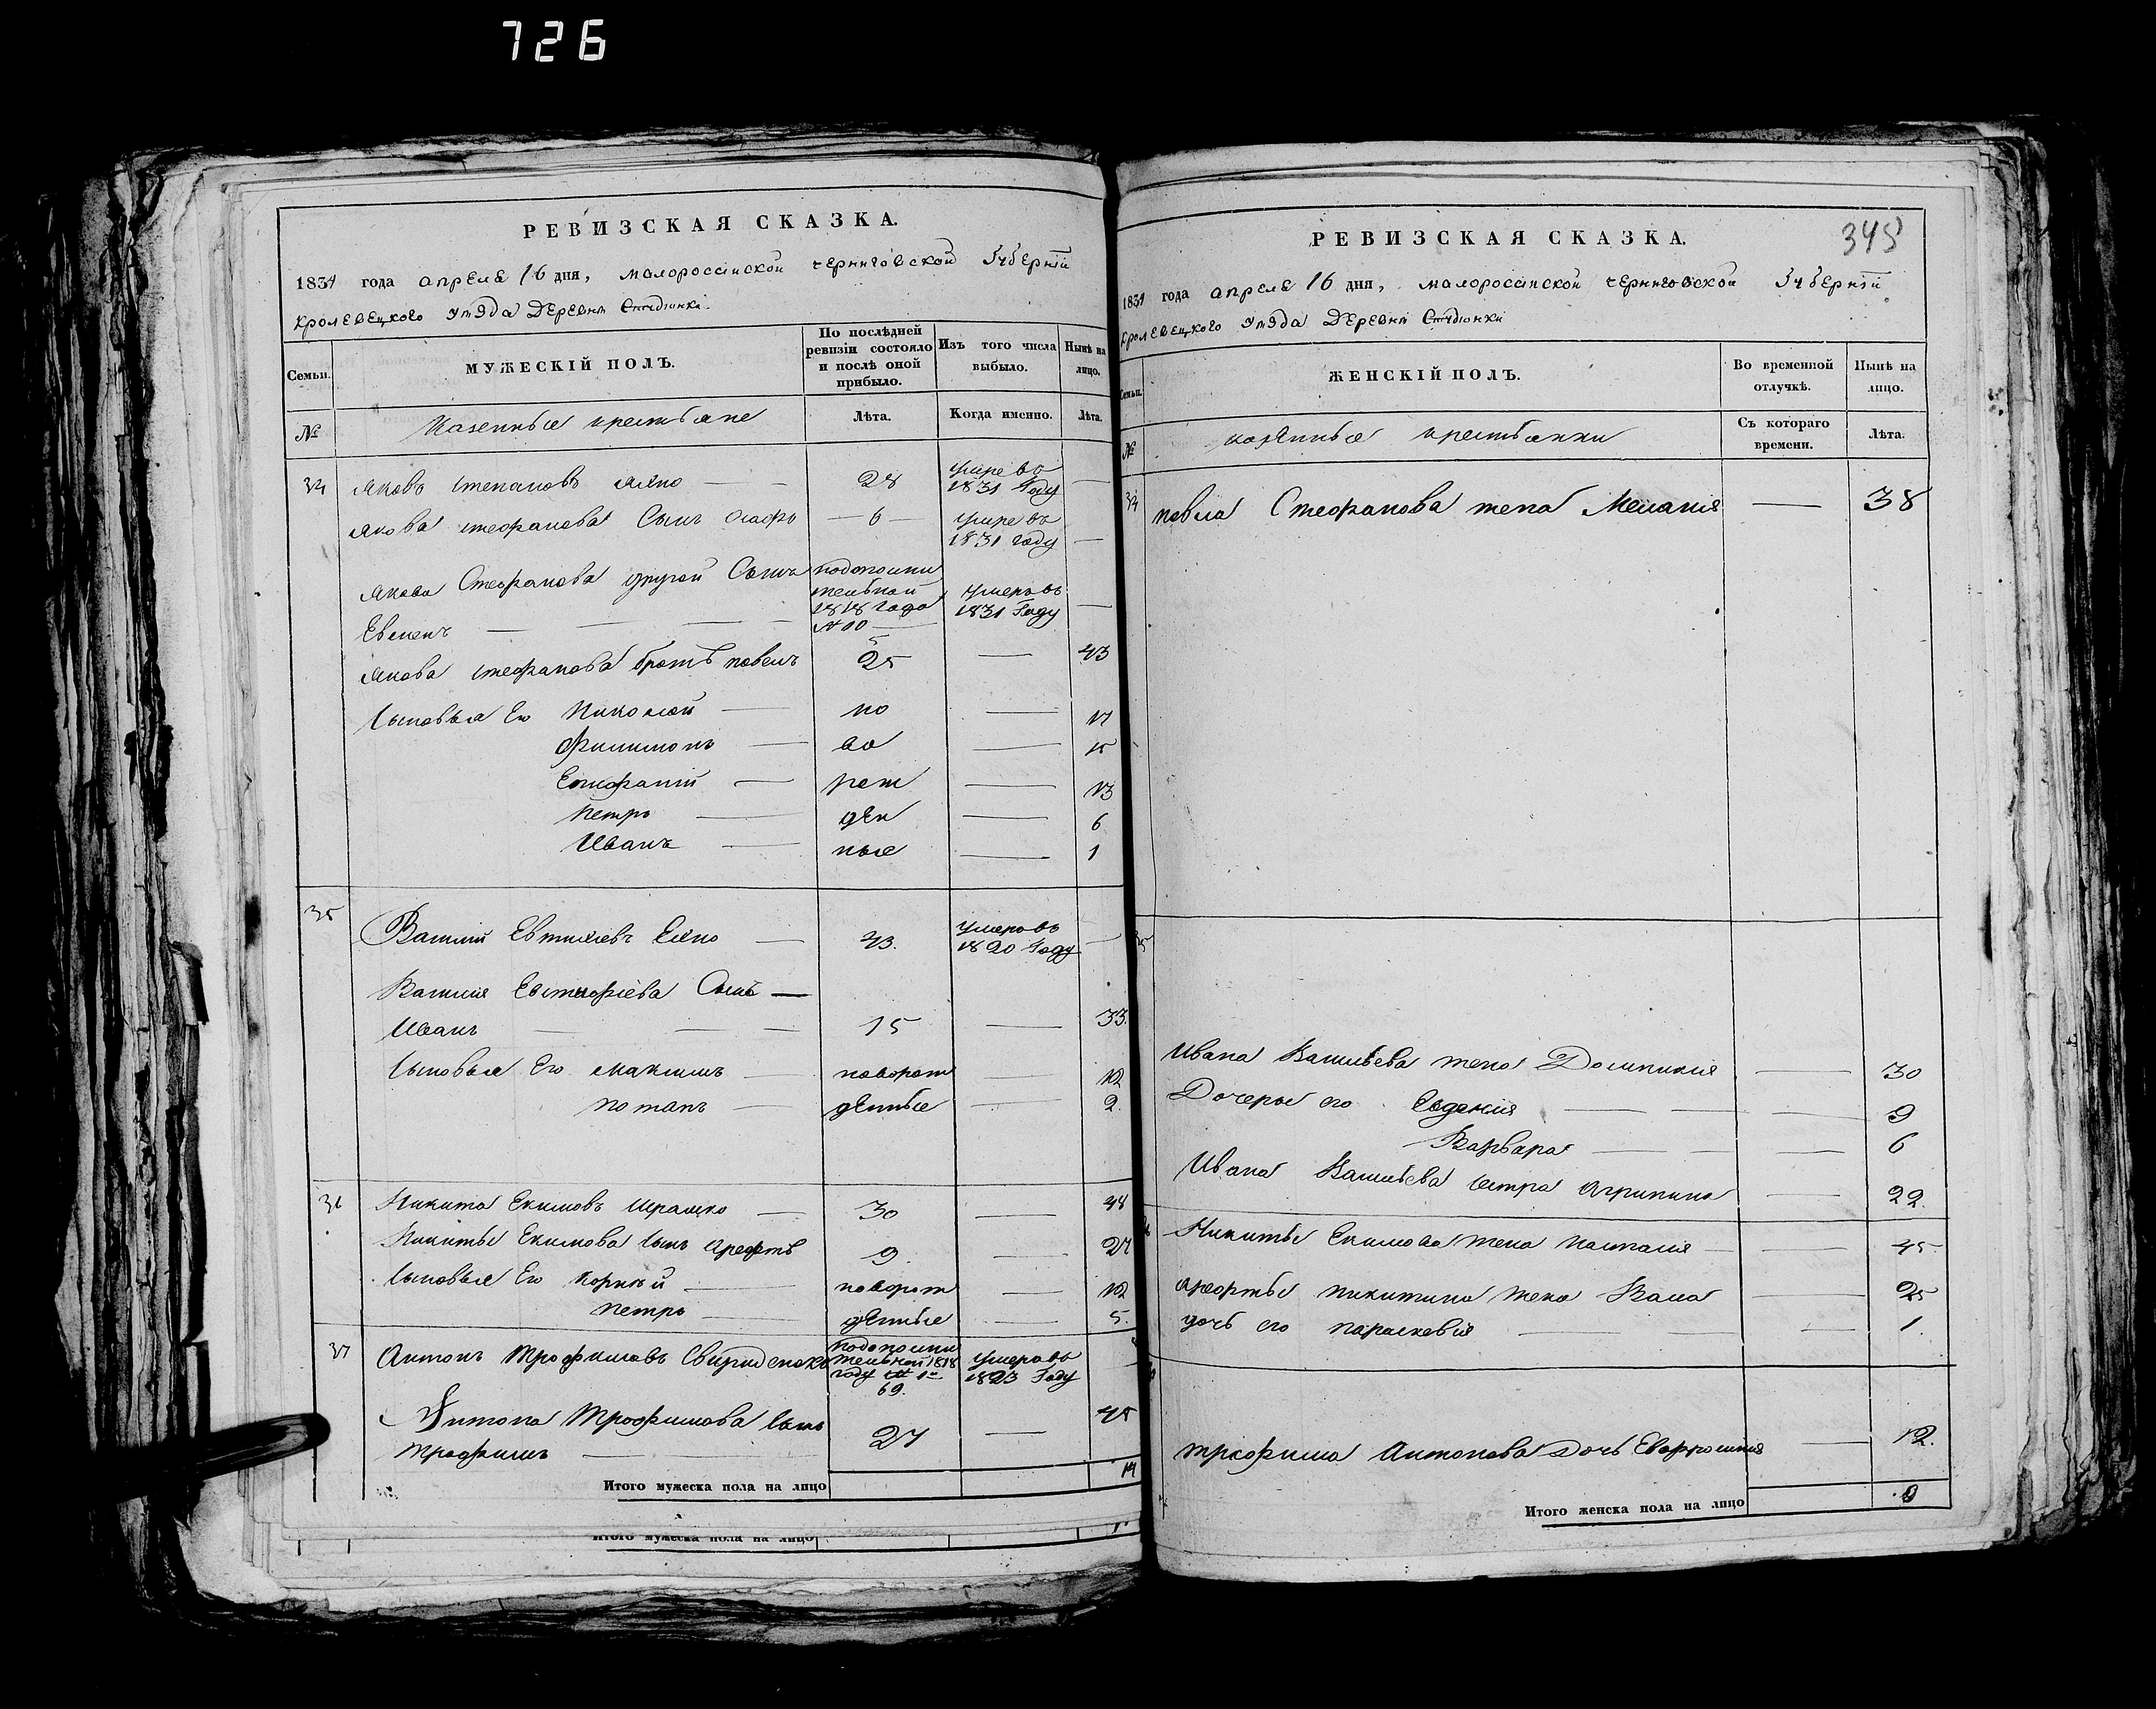 726
РЕВИЗСКАЯ СКАЗКА.
1834 года апреля 16 дня, малороссійской черниговской Губерніи
Кролевецкого уезда Деревни
Семьи.
МУЖЕСКІЙ ПОЛЪ.
По послѣдней ревизіи состояло и послѣ оной прибыло.
Изъ того числа выбыло.
Нынѣ на лицо.
№
Казенные крестьяне
Лѣта.
Когда именно.
Лѣта.
34 Яковъ Степановъ — 28 умре въ 1831 Году —
Якова Стефанова Сынъ — 6 — умре въ 1831 году —
Якова Стефанова другой Сынъ
Евменъ — подополнительной 1818 года № 10 5 умеръ въ 1831 Году —
Якова Стефанова братъ павелъ 25 — 43
Сыновья Его Николай — но — 17
Филимонъ — во — 15
Епифаній — рож — 13
Петръ — ден — 6
Иванъ — ные — 1
35 Василий Евтихиевъ — 43. умеръ въ 1820 Году —
Василия Сынъ —
Иванъ — 15 — 33.
Сыновья Его Максимъ — новорож — 12
Потапъ — денные — 2.
36 Никита Екимовъ Ирашко — 30 — 48
Никиты Екимова Сынъ Арефтъ 9 — 27
Сыновья Его Корней — новорож — 12
Петръ — денные — 5.
37 Антонъ Трофимовъ подополнительной 1818 году 69. умеръ въ 1823 Году
Антона Трофимова Сынъ
Трофимъ — 27 — 45
Итого мужеска пола на лицо 14
Итого мужеска пола на лицо
РЕВИЗСКАЯ СКАЗКА.
345
1834 года апреля 16 дня, малороссійской черниговской Губерніи
Кролевецкого уезда Деревни
Семьи.
ЖЕНСКІЙ ПОЛЪ.
Во временной отлучкѣ.
Нынѣ на лицо.
№
казенные крестьянки
Съ котораго времени.
Лѣта.
34 павла Стефанова жена Меланія — 38
35
Ивана Васильева жена Домникия — 30
Дочеры его Евдокия — 9
Варвара — 6
Ивана Васильева Сестра Агрипина — 22.
Никиты Екимова жена Настасия — 45.
Арефты Никитина жена Васа — 25
дочь его параскевія — 1.
Трофима Антонова дочь Евфросиния — 12.
Итого женска пола на лицо 9